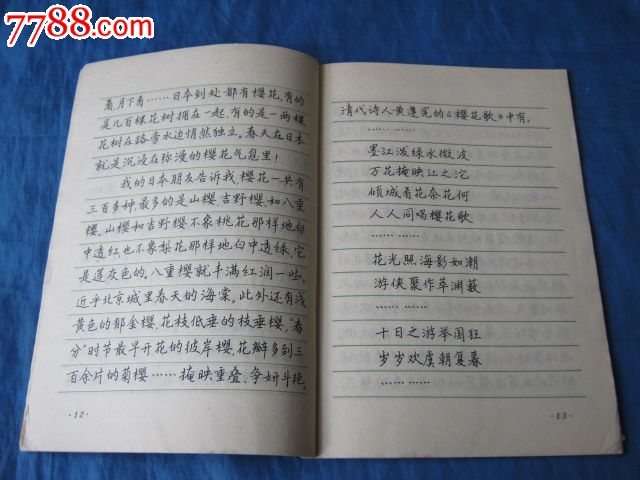 7788.com
看,月下看……日本到处都有樱花,有的
是几百棵花树拥在一起,有的是一两棵
花树在路旁水边悄然独立。春天在日本
就是沉浸在弥漫的樱花气息里!
我的日本朋友告诉我,樱花一共有
三百多种,最多的是山樱、吉野樱、和八重
樱。山樱和吉野樱不象桃花那样地白
中透红,也不象梨花那样地白中透绿,它
是莲灰色的,八重樱就丰满红润一些,
近乎北京城里春天的海棠。此外还有浅
黄色的郁金樱,花枝低垂的枝垂樱,“春
分”时节最早开花的彼岸樱,花瓣多到三
百余片的菊樱……掩映重叠、争妍斗艳。
·12·
清代诗人黄遵宪的《樱花歌》中有,
……
墨江泼绿水微波
万花掩映江之沱
倾城看花奈花何
人人同唱樱花歌
……
花光照海影如潮
游侠聚作萃渊薮
……
十日之游举国狂
岁岁欢虞朝复暮
……
·13·